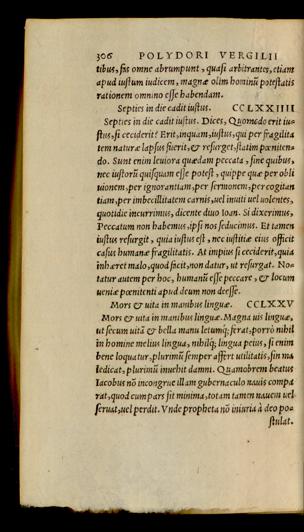 306 POLYDORI VERGILII
tibus, fas omne abrumpunt, quasi arbitrantes, etiam
apud iustum iudicem, magnæ olim hominũ potestatis
rationem omnino esse habendam.
Septies in die cadit iustus. CCLXXIIII
Septies in die cadit iustus. Dices, Quomodo erit iu-
stus, si ceciderit? Erit, inquam, iustus, qui per fragilita
tem naturæ lapsus fuerit, & resurget, statim pœniten-
do. Sunt enim leuiora quædam peccata, sine quibus,
nec iustorũ quisquam esse potest, quippe quæ per obli
uionem, per ignorantiam, per sermonem, per cogitan
tiam, per imbecillitatem carnis, uel inuiti uel uolentes,
quotidie incurrimus, dicente diuo Ioan. Si dixerimus,
Peccatum non habemus, ipsi nos seducimus. Et tamen
iustus resurgit, quia iustus est, nec iustitiæ eius officit
casus humanæ fragilitatis. At impius si ceciderit, quia
inhæret malo, quod facit, non datur, ut resurgat. No-
tatur autem per hoc, humanũ esse peccare, & locum
ueniæ pœnitenti apud deum non deesse.
Mors & uita in manibus linguæ. CCLXXV
Mors & uita in manibus linguæ. Magna uis linguæ,
ut secum uitã & bella manu letumq; ferat, porrò nihil
in homine melius lingua, nihilq; lingua peius, si enim
bene loquatur, plurimũ semper affert utilitatis, sin ma
ledicat, plurimũ inuehit damni. Quamobrem beatus
Iacobus nõ incongrue illam gubernaculo nauis compa
rat, quod cum pars sit minima, totam tamen nauem uel
seruat, uel perdit. Vnde propheta nõ iniuria à deo po-
stulat.